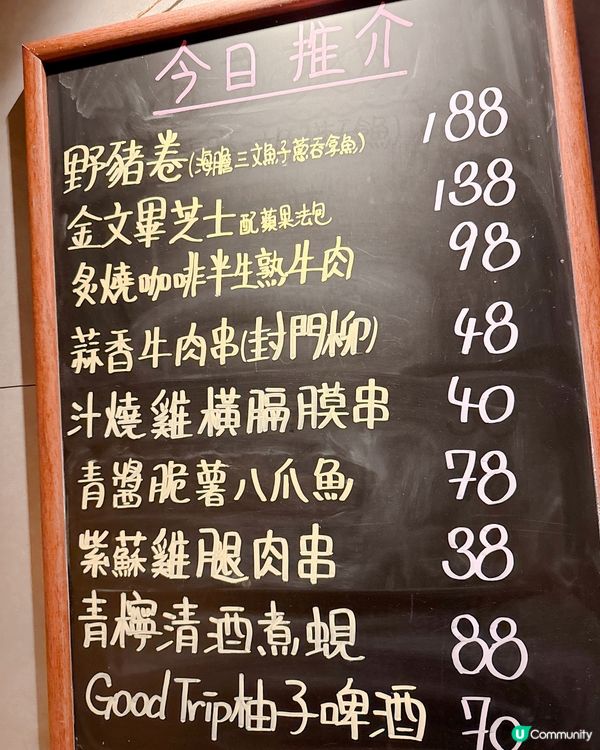 今日推介
野豬卷(海膽三文魚子蔥吞拿魚) 188
金文畢芝士配蘋果法包 138
炙燒咖啡半生熟牛肉 98
蒜香牛肉串(封門柳) 48
汁燒雞橫膈膜串 40
青醬脆薯八爪魚 78
紫蘇雞腿肉串 38
青檸清酒煮蜆 88
Good Trip柚子啤酒 70
U Community